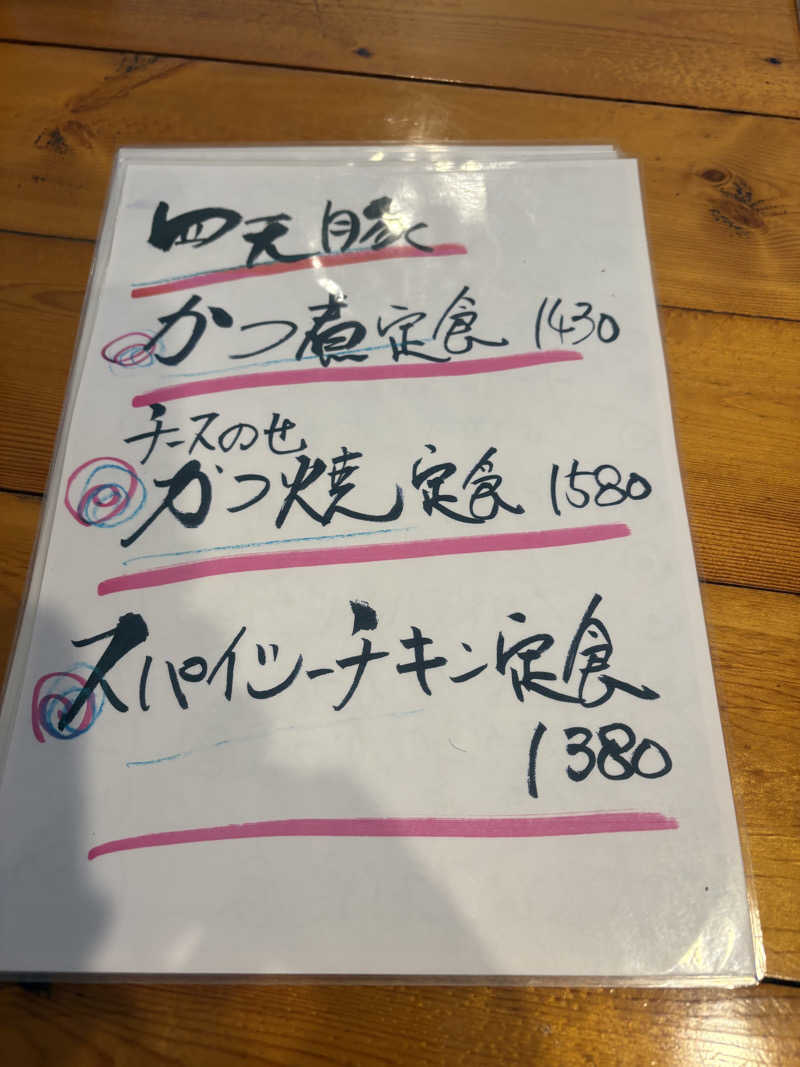 四元豚
かつ煮定食 1430
チーズのせ
かつ焼定食 1580
スパイシーチキン定食
1380